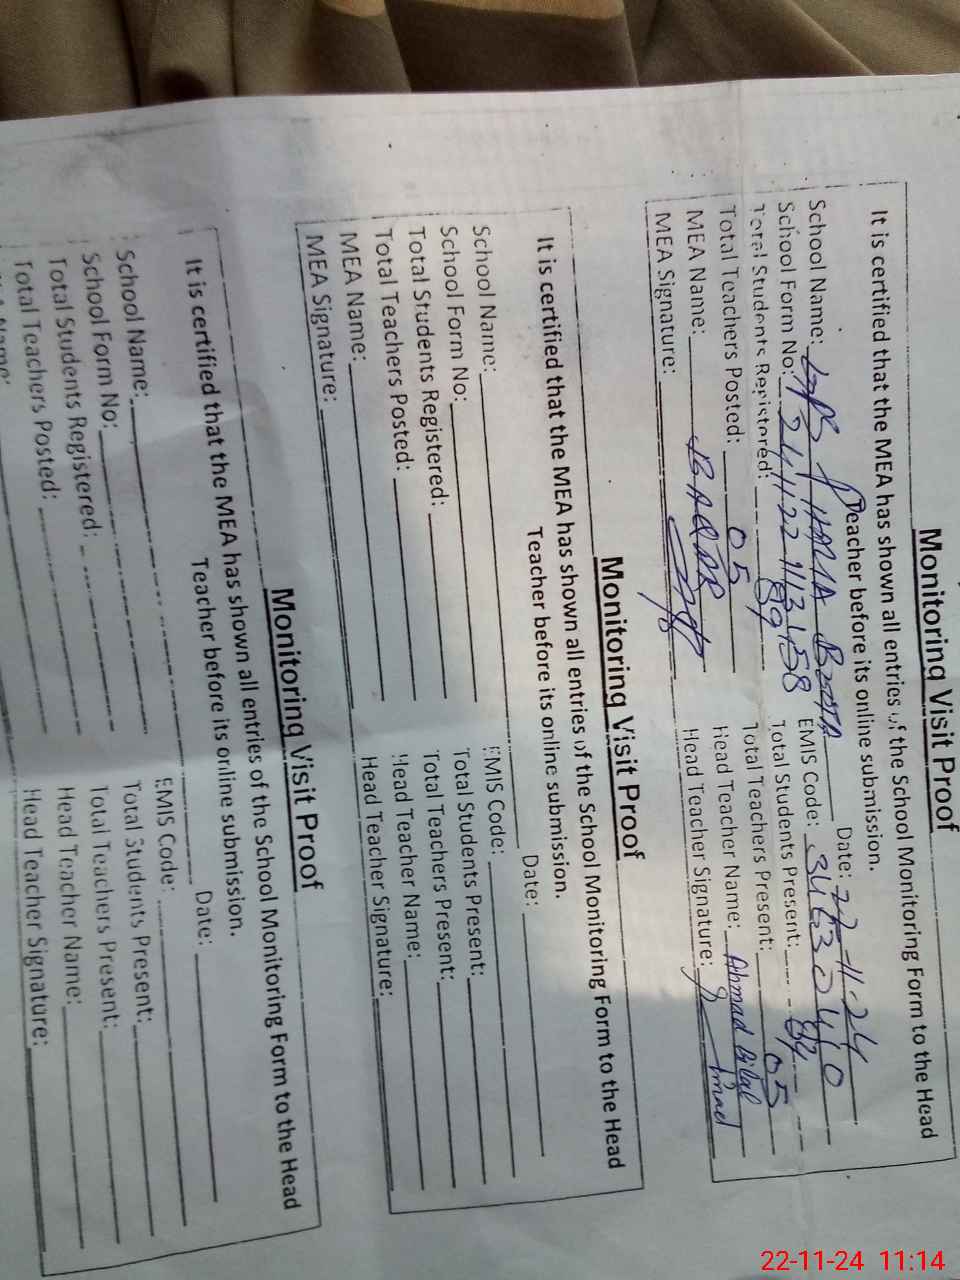 Monitoring Visit Proof
It is certified that the MEA has shown all entries of the School Monitoring Form to the Head
Teacher before its online submission.
School Name: Date: 22-11-24
School Form No: EMIS Code:
Total Students Registered: 89 Total Students Present: 84
Total Teachers Posted: 05 Total Teachers Present: 05
MEA Name: Head Teacher Name: Ahmad Bilal
MEA Signature: Head Teacher Signature:
Monitoring Visit Proof
It is certified that the MEA has shown all entries of the School Monitoring Form to the Head
Teacher before its online submission.
School Name: Date:
School Form No: EMIS Code:
Total Students Registered: Total Students Present:
Total Teachers Posted: Total Teachers Present:
MEA Name: Head Teacher Name:
MEA Signature: Head Teacher Signature:
Monitoring Visit Proof
It is certified that the MEA has shown all entries of the School Monitoring Form to the Head
Teacher before its online submission.
School Name: Date:
School Form No: EMIS Code:
Total Students Registered: Total Students Present:
Total Teachers Posted: Total Teachers Present:
Head Teacher Name:
Head Teacher Signature:
22-11-24 11:14